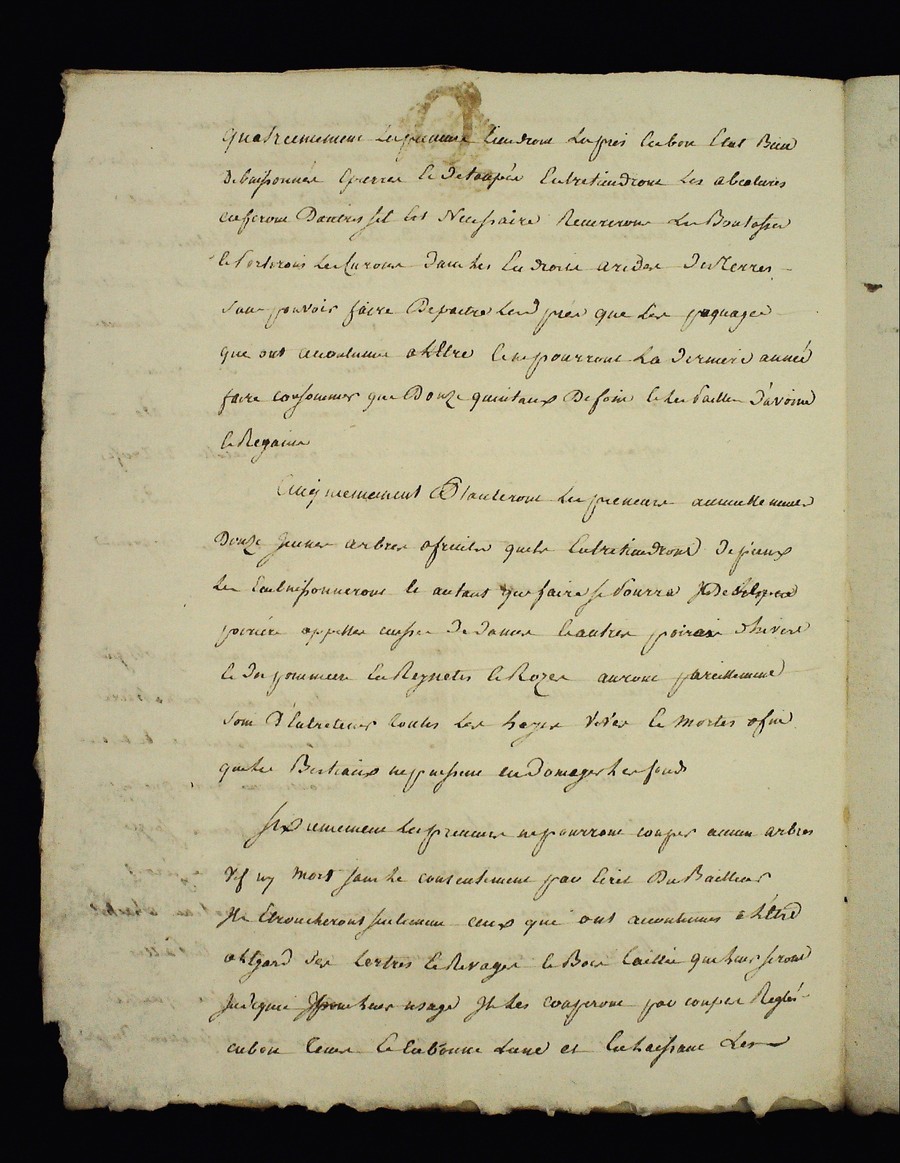 quatriememement les preneurs tiendront les prés en bon Etat Bien
Debuissonnés Epierrés et Detaupés Entretiendront les abeatures
en feront Dautres sil Est Necessaire Recureront Les Boutasses
et Porterons les Curons dans les Endroits arides Des Terres
sans pouvoir faire Depaitre Lesd prés que Les paquages
que ont acoutumé a L'Etre et ne pourront La Derniere année
faire consommer que Douze quintaux De foin et Les Pailles D'avoine
et Regains
Cinqiememement Planteront Les preneurs annuellement
Douze Jeunes arbres a fruits quils Entretiendront De pieux
Les Embuissonnerons et autant que faire se Pourra
poiriés appellés cuisse De Dames et autres poirier D'hivers
et Des pommiers En Reynetes et Rozes auront pareillement
soin D'Entretenir toutes Les hayes Vives et Mortes afin
que les Bestiaux ne puissent endomager les fonds
sixiememement Les preneurs ne pourront couper aucun arbres
Vif ny Mort sans le consentement par Ecrit Du Bailleur
Ils Etroncherons seulement ceux que ont acoutumés a L'Etre
a L'Egard Des tertres et Rivages et Bois taillis que leurs seront
Indiqués pour leurs usage Ils Les couperont par coupes Reglés
en bon tems Et En Bonne Lune et En Laissant Les